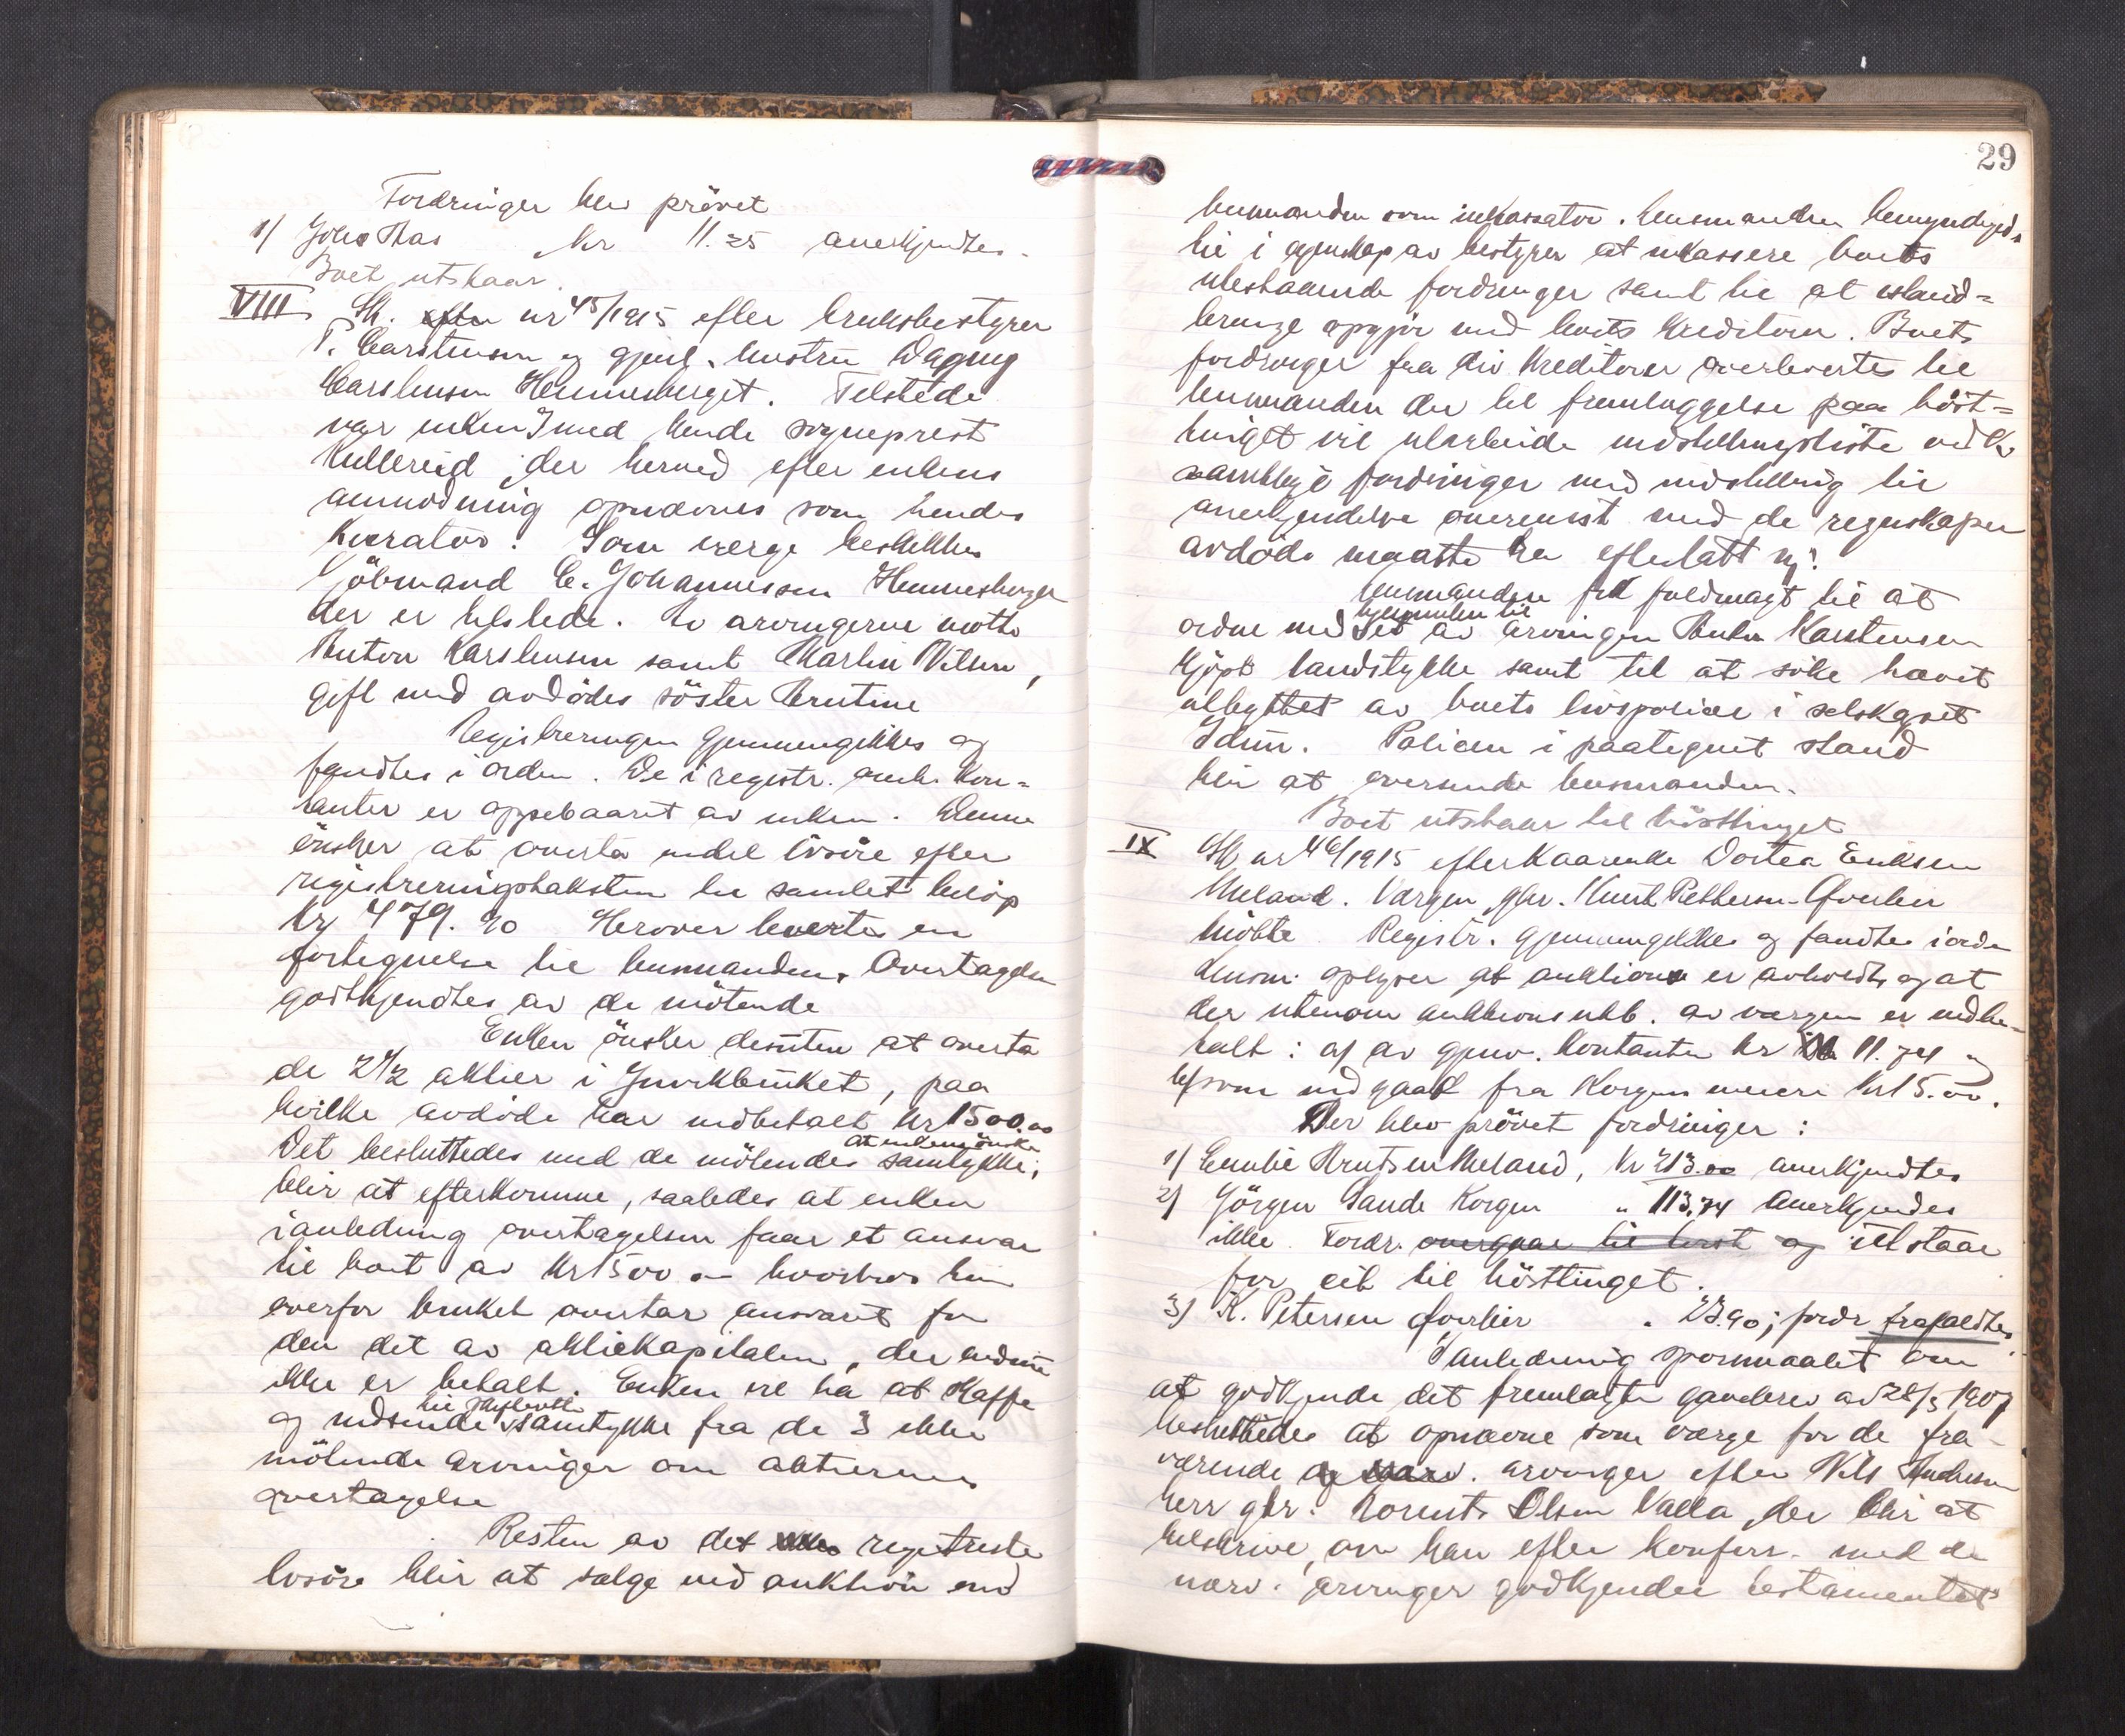 Fordringer blev prövet
1) Johs Aas Kr 11.25 anerkjendtes.
Boet utstaar.
VIII Sk. efter nr 45/1915 efter bruksbestyrer
P. Carstensen og gjenl. hustru Dagny
Carstensen Hemnesberget. Tilstede
var enken med hende sogneprest
Kullereid der herved efter enkens
anmodning opnævnes som hendes
Kurator. Som verge beskikkes
Kjöbmand C. Johannessen Hemnesberget
der er tilstede. Av arvingerne mötte
Anton Karstensen samt Martin Nilsen,
gift med avdödes söster Krutine
Registreringen gjennemgikkes og
fandtes i orden. De i registr. anm. kon-
tanter er oppebaaret av enken. Denne
önsker at overta endel lösöre efter
registreringstaksten til samlet belöp
Kr 479.90 Herover levertes en
fortegnelse til lensmanden. Overtagelsen
godtkjendtes av de mötende
Enken önsker desuten at overta
de 2 1/2 aktier i bruket, paa
hvilke avdöde har indbetalt Kr 1500.00
at enkens önske
Det besluttedes med de mötendes samtykke,
blir at efterkomme, saaledes at enken
i anledning overtagelsen faar et ansvar
til boet av Kr 1500 00 hvorhos hun
overfor bruket overtar ansvaret for
den del av aktiekapitalen, der endnu
ikke er betalt. Enken vil ha at skaffe
til skifteretten
og indsende samtykke fra de 3 ikke
mötende arvinger om aktiernes
overtagelse
Resten av det registrerte
lösöre blir at sælge ved auktion med
29
lensmanden som inkassator. Lensmanden bemyndiges
til i egenskap av bestyrer at inkassere boets
utestaaende fordringer samt til at istand-
bringe opgjör med boets kreditorer. Boets
fordringer fra div kreditorer overlevertes til
lensmanden der til fremlæggelse paa höst-
tinget vil utarbeide indstillingsliste vedk
samtlige fordringer med indstilling til
anerkjendelse overensst med de regnskaper
avdöde maatte ha efterlatt sig.
Lensmanden fik fuldmagt til at
hjemmelen til
ordne med det av arvingen Anton Karstensen
kjöpt landstykke samt til at söke hævet
utbyttet av boets livspolicer i selskapet
Idun. Policen i paategnet stand
blir at oversende lensmanden.
Boet utstaar til hösttinget
IX Sk nr 46/1915 efter kaarenke Dortea Eriksen
Meland. Værgen gbr. Knut Pettersen Qverlier
mötte Registr. gjennemgikkes og fandtes i orden
Lensm. oplyser at auktion er avholdt, og at
der utenom auktionsutb. av værgen er indbe-
talt: a) av gjenv. kontanter kr 11.74 og
b) som indgaat fra Korgen meieri kr 15.00.
Der blev prövet fordringer:
1) Emilie Knutsen Meland, Kr 213.00 anerkjendtes
2) Jörgen Sande Korgen " 113.74 anerkjendes
ikke. Fordr. overgaar til tvist og utstaar
for eit til hösttinget.
3) K. Petersen Qverlier " 23.90; fordr frafaldtes
I anledning spörsmaalet om
at godkjende det fremlagte gavebrev av 28/3 1907
besluttedes at opnævne som værge for de fra-
værende arvinger efter Nils Andersen
herr gbr. Lorents Olsen Valla, der blir at
tilskrive, om han efter konferr. med de
nærv. arvinger godkjender testamentet